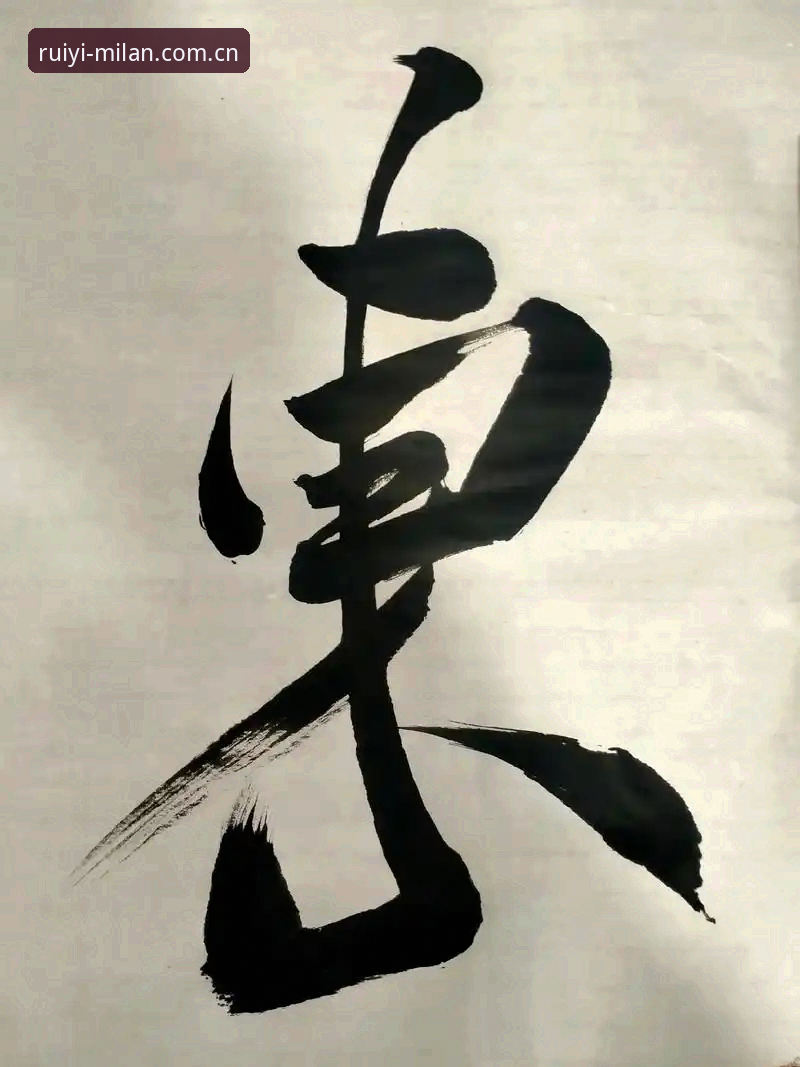 ruiyi-milan.com.cn
東